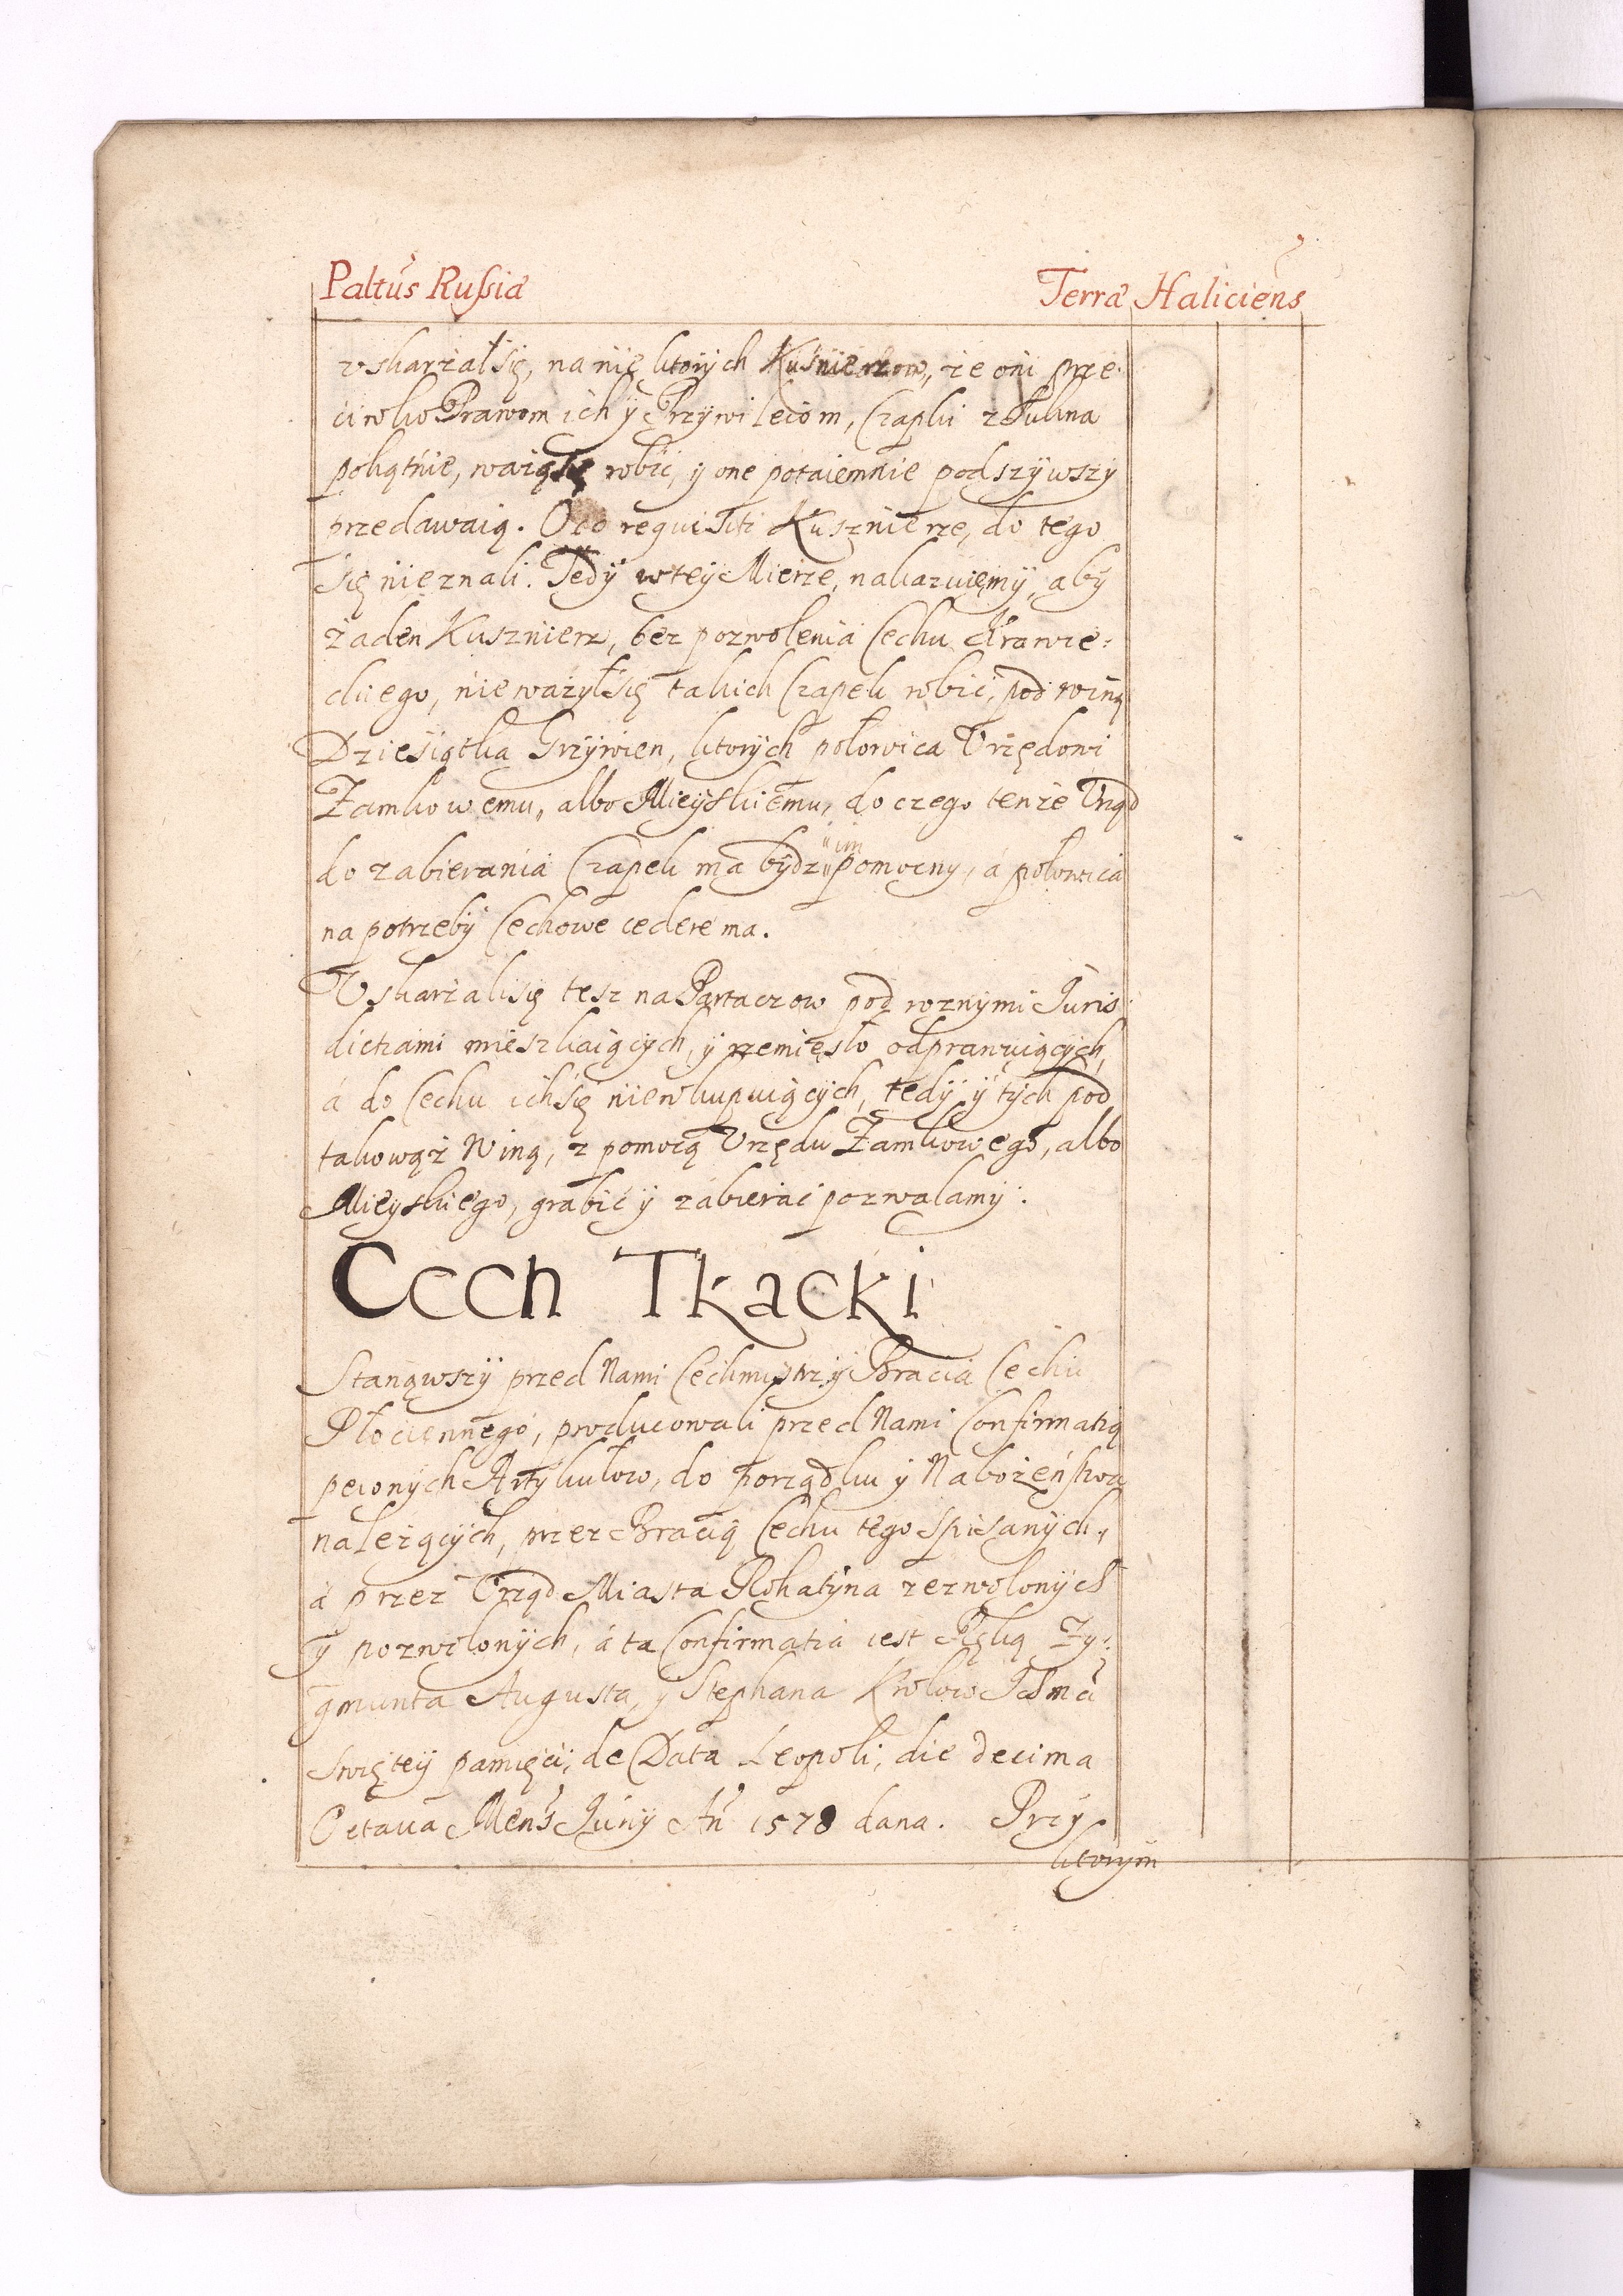 Paltus Russiæ Terræ Haliciens
vskarżał się, na nię ktorych Kuśnierzow, że oni prze
ciwko Prawom ich ÿ Przÿwileiom, Czapki z Sukna
pokątnie, ważą się robić, ÿ one potaiemnie podszÿwszÿ
przedawaią. Oco requisiti Kusznierze, do tego
się nieznali. Tedÿ w teÿ Mierze, nakazuiemÿ, abÿ
żaden Kusznierz, bez pozwolenia Cechu Krawie:
ckiego, nieważył się takich Czapek robić, pod winą
Dziesiątka Grzÿwien, ktorÿch połowica Vrzędowi
Zamkowemu, albo Mieÿskiemu, do czego tenże Vrząd
do zabierania Czapek ma bÿdz im pomocny, á połowica
na potrzebÿ Cechowe cedere ma.
Vskarżali się tesz na Partaczow pod roznÿmi Juris
dictiami mieszkaiącÿch, ÿ rzemięsło odprawuiącÿch,
á do Cechu ich się niewkupuiącÿch, tedÿ ÿ tÿch pod
takowąż Winą, z pomocą Vrzędu Zamkowego, albo
Mieyskiego, grabić ÿ zabierać pozwalamÿ.
Cech Tkacki
Stanąwszÿ przed Nami Cechmistrz ÿ Bracia Cechu
Płociennego, producowali przed Nami Confirmatią
pewnÿch Artÿkułow, do porządku ÿ Nabożeństwa
należącÿch, przez Bracią Cechu tego spisanÿch,
á przez Vrząd Miasta Rohatÿna zezwolonÿch
ÿ pozwolonÿch, á ta Confirmatia iest Ręką Zÿ:
gmunta Augusta, ÿ Stephana Krolow
Swięteÿ pamięci, de Data Leopoli, die decima
Octaua Mens Junÿ An 1578 dana. Przÿ
ktorÿm